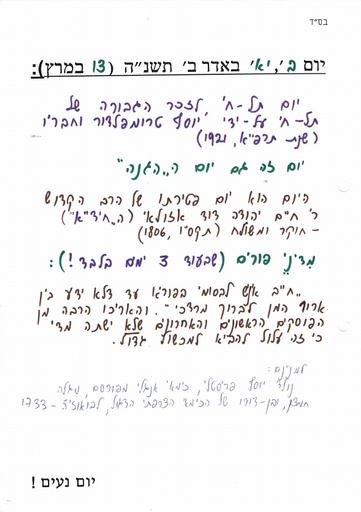 בס"ד
יום ב', יא' באדר ב' תשנ"ה (13 במרץ):
יום תל-חי, לזכר הגבורה של
תל-חי על-ידי יוסף טרומפלדור וחבריו
(שנת תרפ"א, 1921)
יום זה גם יום ה"הגנה"
היום הוא יום פטירתו של הרב הקדוש
ר' חיים יהודה דוד אזולאי (ה"חיד"א")
- חוקר ומשולח (תקס"ו, 1806)
מדיני פורים (שבעוד 3 ימים בלבד!):
"חייב איניש לבסומי בפוריא עד דלא ידע בין
ארור המן לברוך מרדכי". והאריכו הרבה מן
הפוסקים הראשונים והאחרונים שלא ישתה מדי
כי זה עלול להביא למכשול גדול.
נולד יוסף פריסטלי, כימאי אנגלי מפורסם, מגלה
חמצן, ובן-דורו של הכימאי הצרפתי הדגול, לבואזיה - 1733
יום נעים!